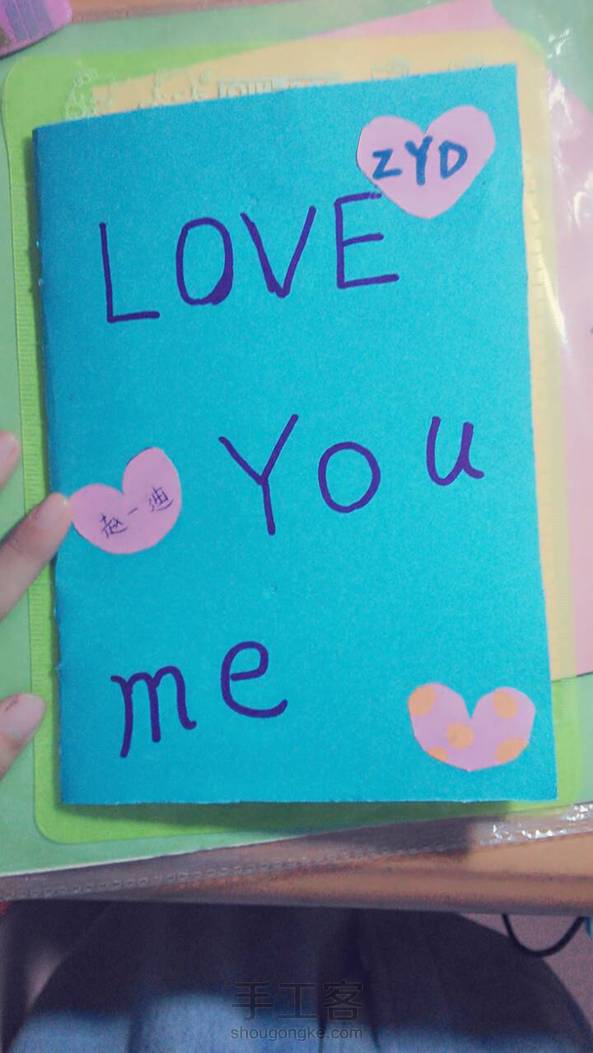 ZYD
LOVE
You
赵一迪
me
手工客
shougongke.com